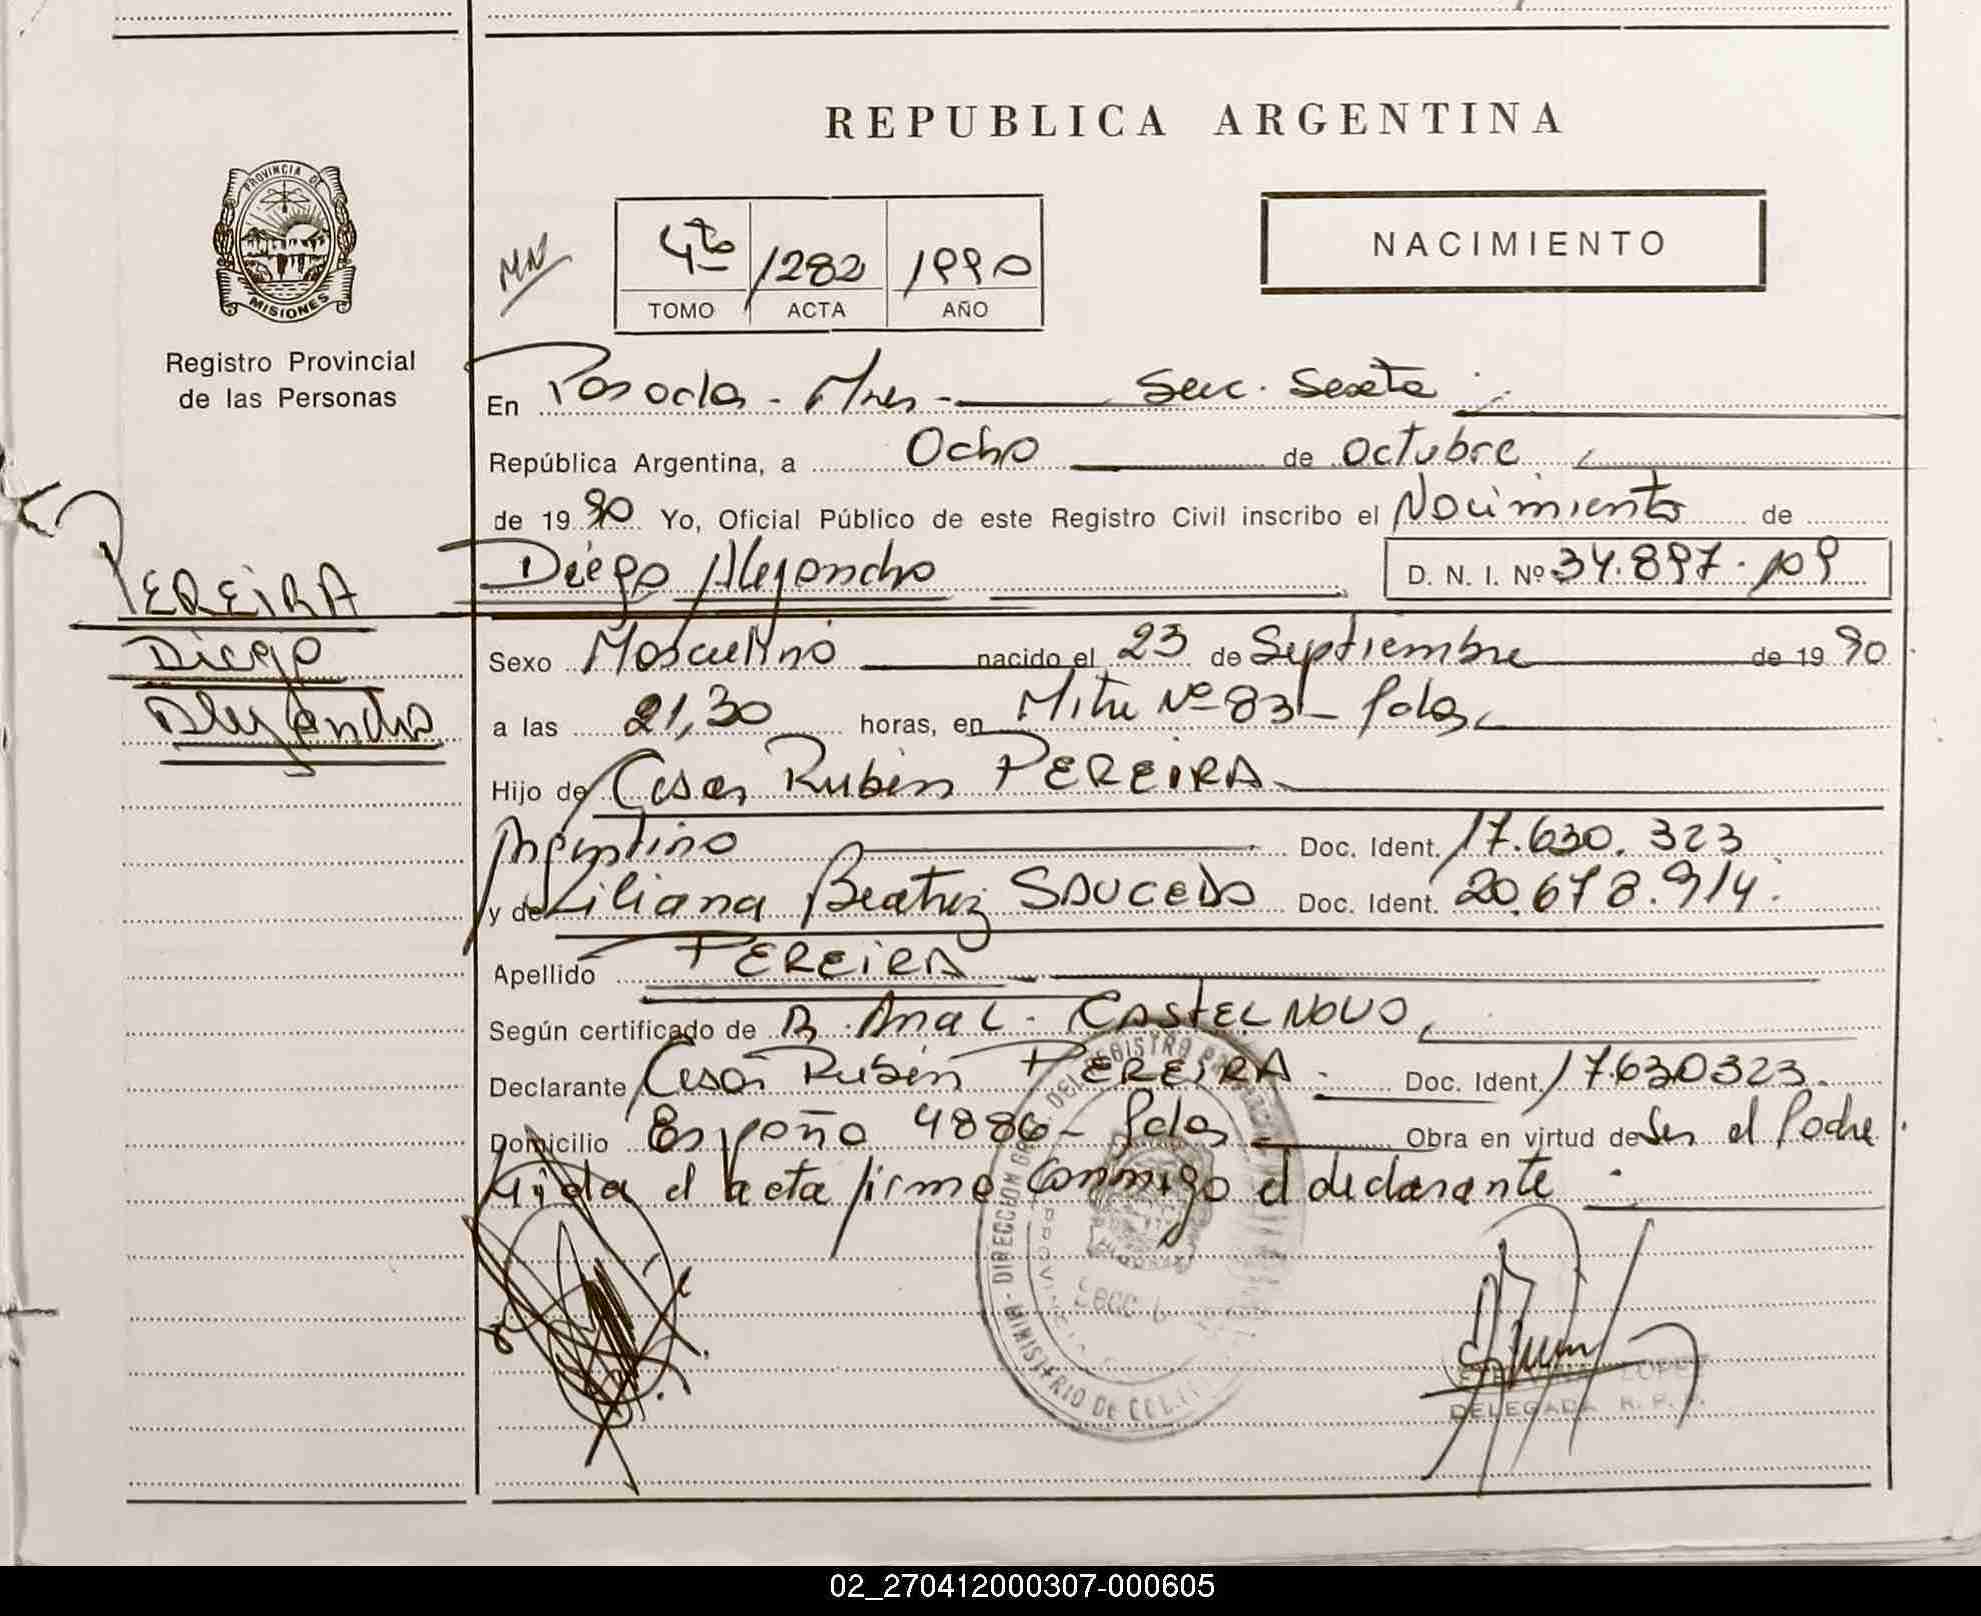 REPUBLICA ARGENTINA
PROVINCIA DE
MISIONES
Registro Provincial
de las Personas
MN
4to 1282 1990
TOMO ACTA AÑO
NACIMIENTO
En Posadas - Mnes - Secc. Sexta
República Argentina, a Ocho de Octubre
de 1990 Yo, Oficial Público de este Registro Civil inscribo el Nacimiento de
Diego Alejandro D. N. I. Nº 34.897.109
PEREIRA
Diego
Alejandro
Sexo Masculino nacido el 23 de Septiembre de 1990
a las 21,30 horas, en Mitre Nº 83 - Pdas
Hijo de Cesar Rubén PEREIRA
Argentino Doc. Ident. 17.630.323
y de Liliana Beatriz SAUCEDO Doc. Ident. 20.678.914.
Apellido PEREIRA
Según certificado de Ana L. CASTELNOVO
Declarante Cesar Rubén PEREIRA. Doc. Ident. 17630323.
Domicilio España 4886 - Pdas Obra en virtud de Ser el Padre
Leída el acta firma conmigo el declarante.
MINISTERIO DE DIRECCION GRAL. DEL REGISTRO
LOPEZ
DELEGADA R. P. P.
02_270412000307-000605